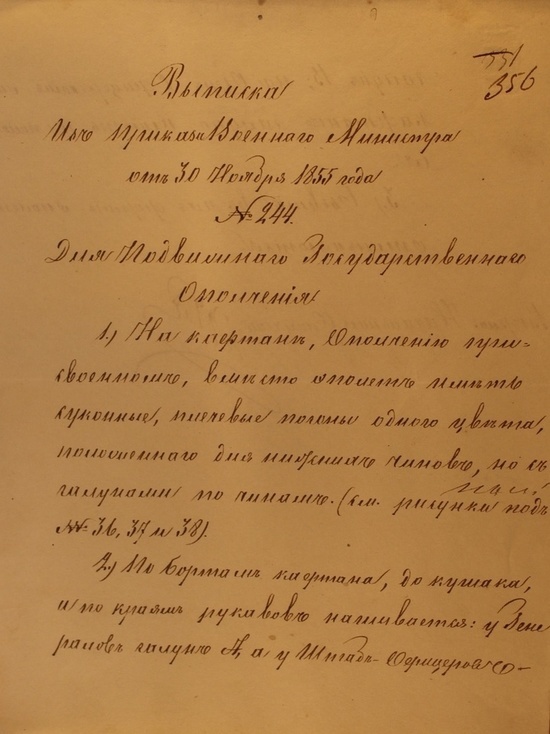 351
356
Выписка
Изъ приказа Военнаго Министра
отъ 30 Ноября 1855 года
№ 244.
Для Подвижнаго Государственнаго
Ополченія
1.) На кафтанъ, Ополченію при-
своенномъ, вмѣсто эполетъ имѣть
суконные, плечевые погоны одного цвѣта,
положеннаго для нижнихъ чиновъ, но съ
галунами по чинамъ. (см. рисунки подъ
№№ 36, 37 и 38).
2.) По бортамъ кафтана, до кушака,
и по краямъ рукавовъ нашивается: у Гене
раловъ галунъ А, а у Штабъ-Офицеровъ О-